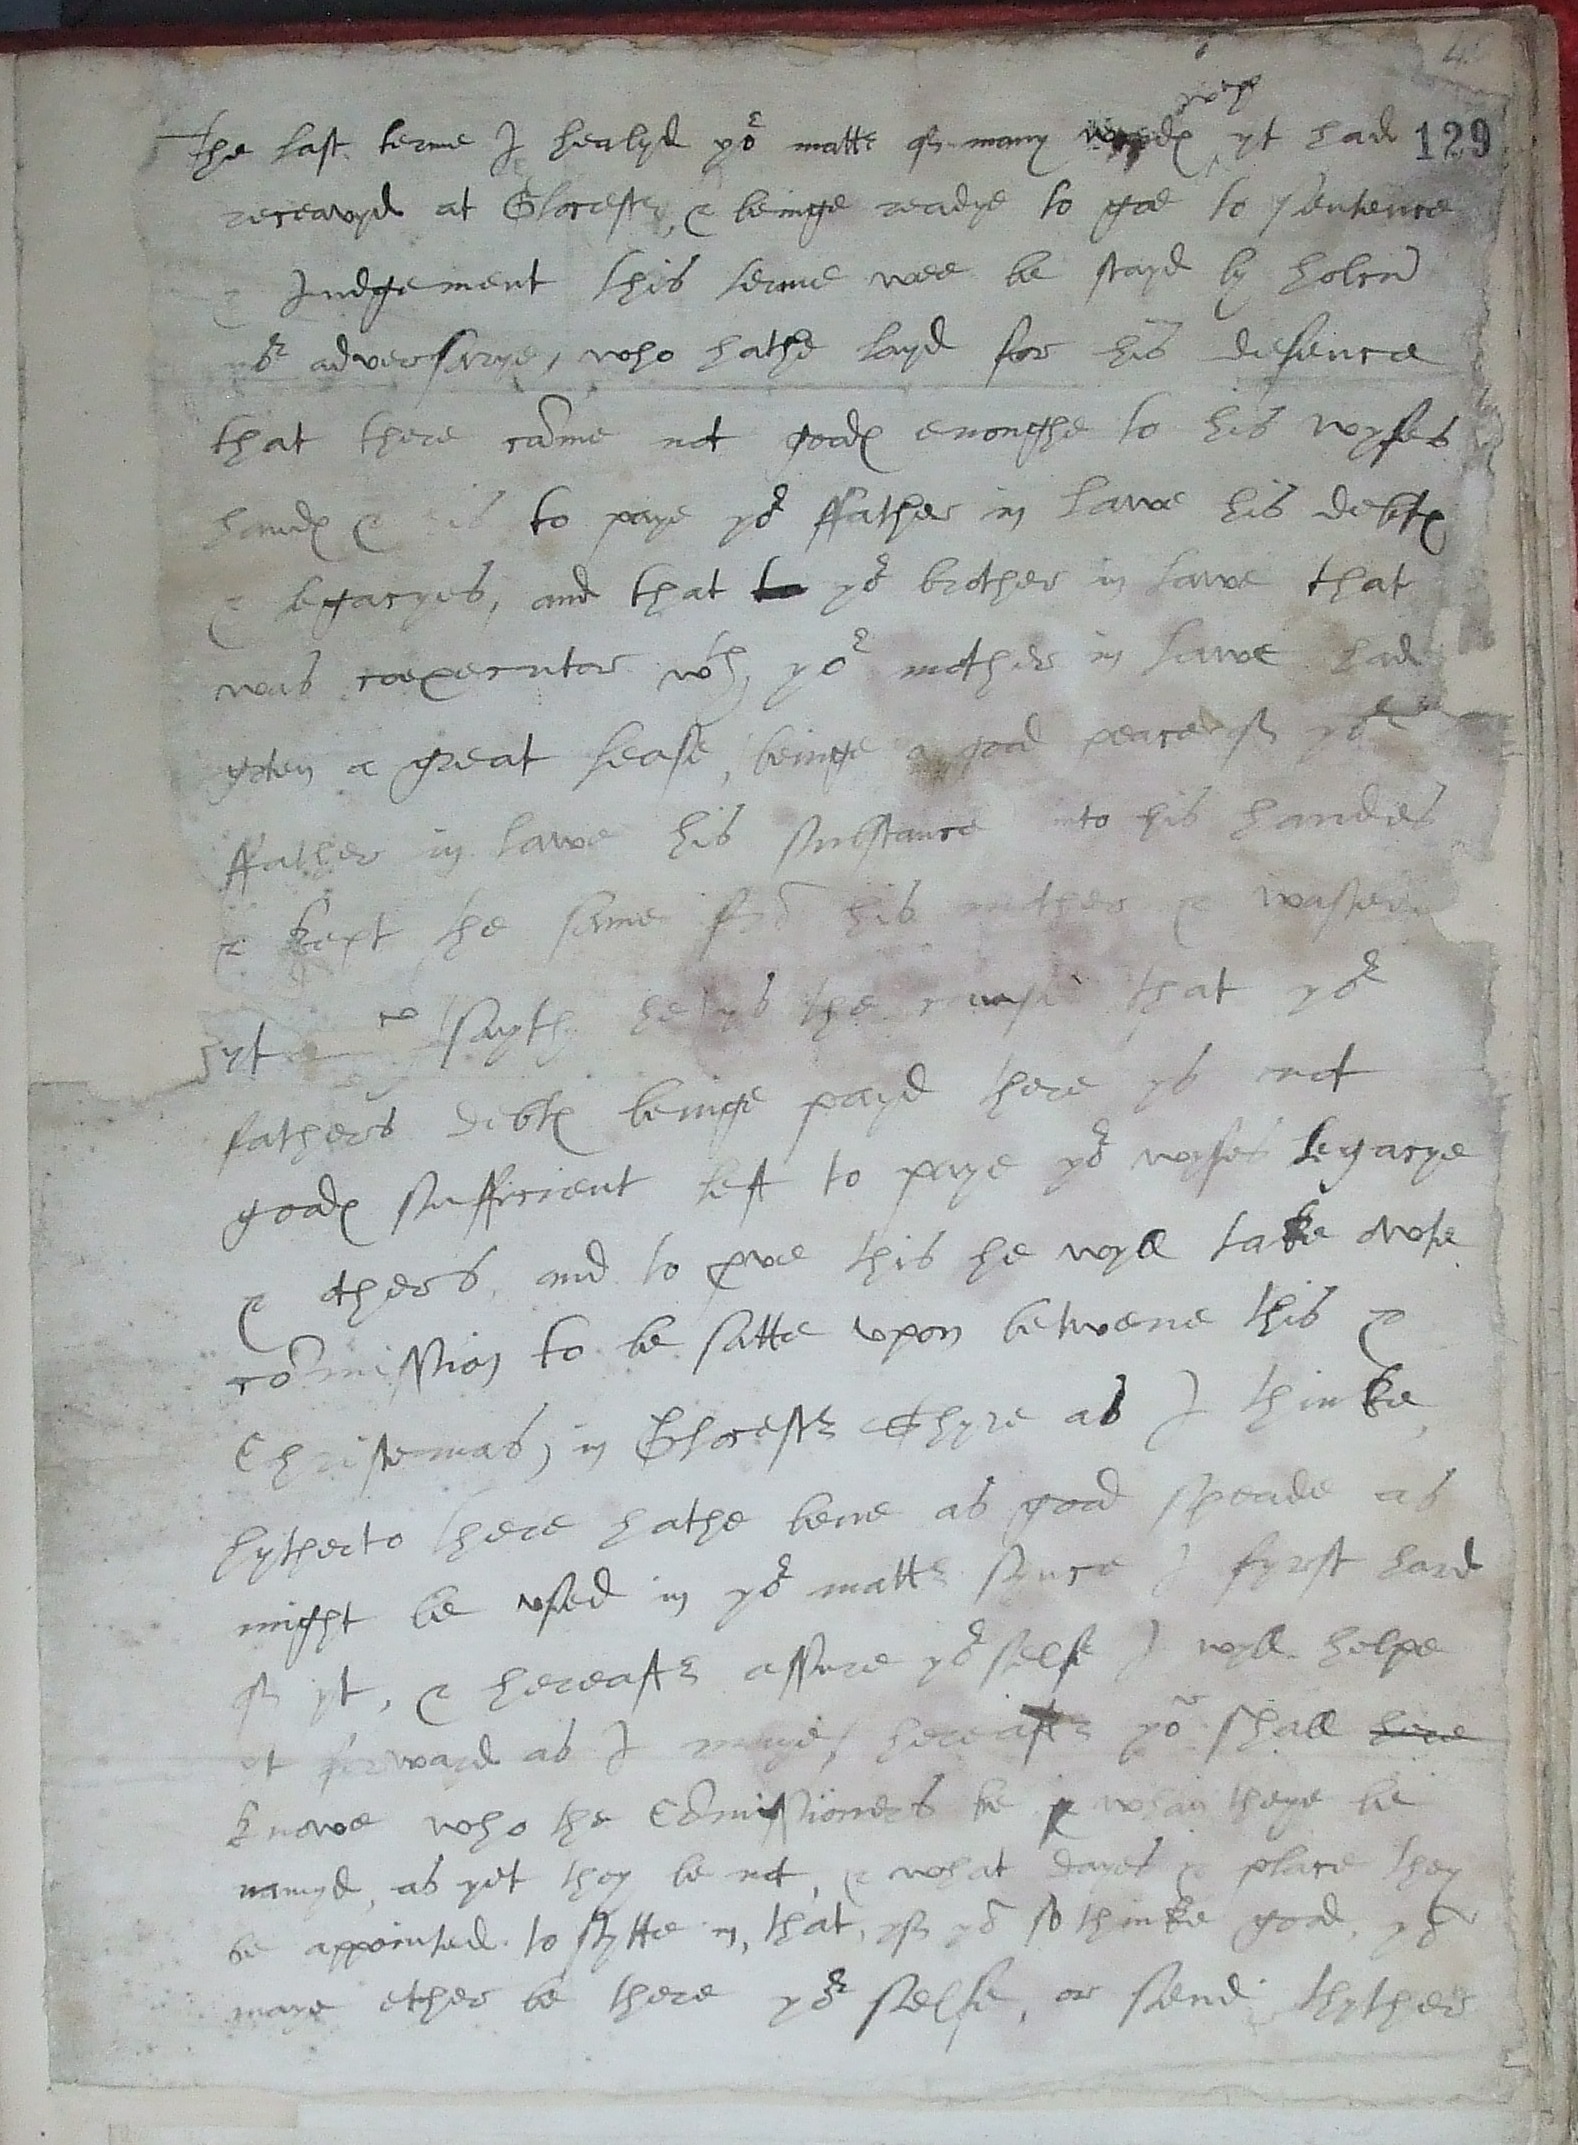 4
wepe
The last terme I healyd yor matter of many woundes yt had 129
receavyd at Glocester, & beinge readye to goe to sentence
& Judgement this terme wee be stayd by
or adversarye, who hathe layd for his defence
that there came not goodes enoughe to his wyfes
handes & his to paye yor ffather in lawe his debtes
& legacyes, and that to yor brother in lawe that
was coexecutor wth yor mother in lawe had
goten a great lease, beinge a good peace of yor
ffather in lawe his substance into his handes
& kept the same fro his mother & wasted
yt & sayth he ys the cause that yor
fathers debtes beinge payd there ys not
goodes sufficient left to paye yor wyfes legacye
& others, and to prove this he wyll take owte
comission to be satte upon betwene this &
Christenmas, in Glocester Shyre as I thinke,
hytherto there hathe bene as good speade as
might be used in yor matter synce I fyrst hard
of yt, & hereafter assure yor selfe I wyll helpe
yt forward as I maye, hereafter you shall here
knowe who the Comissioners be & whan theye be
namyd, as yet they be not, & what dayes & place they
be appointed to sytte in, that, yf you so thinke good, you
maye ether be there yor selfe, or send thyther